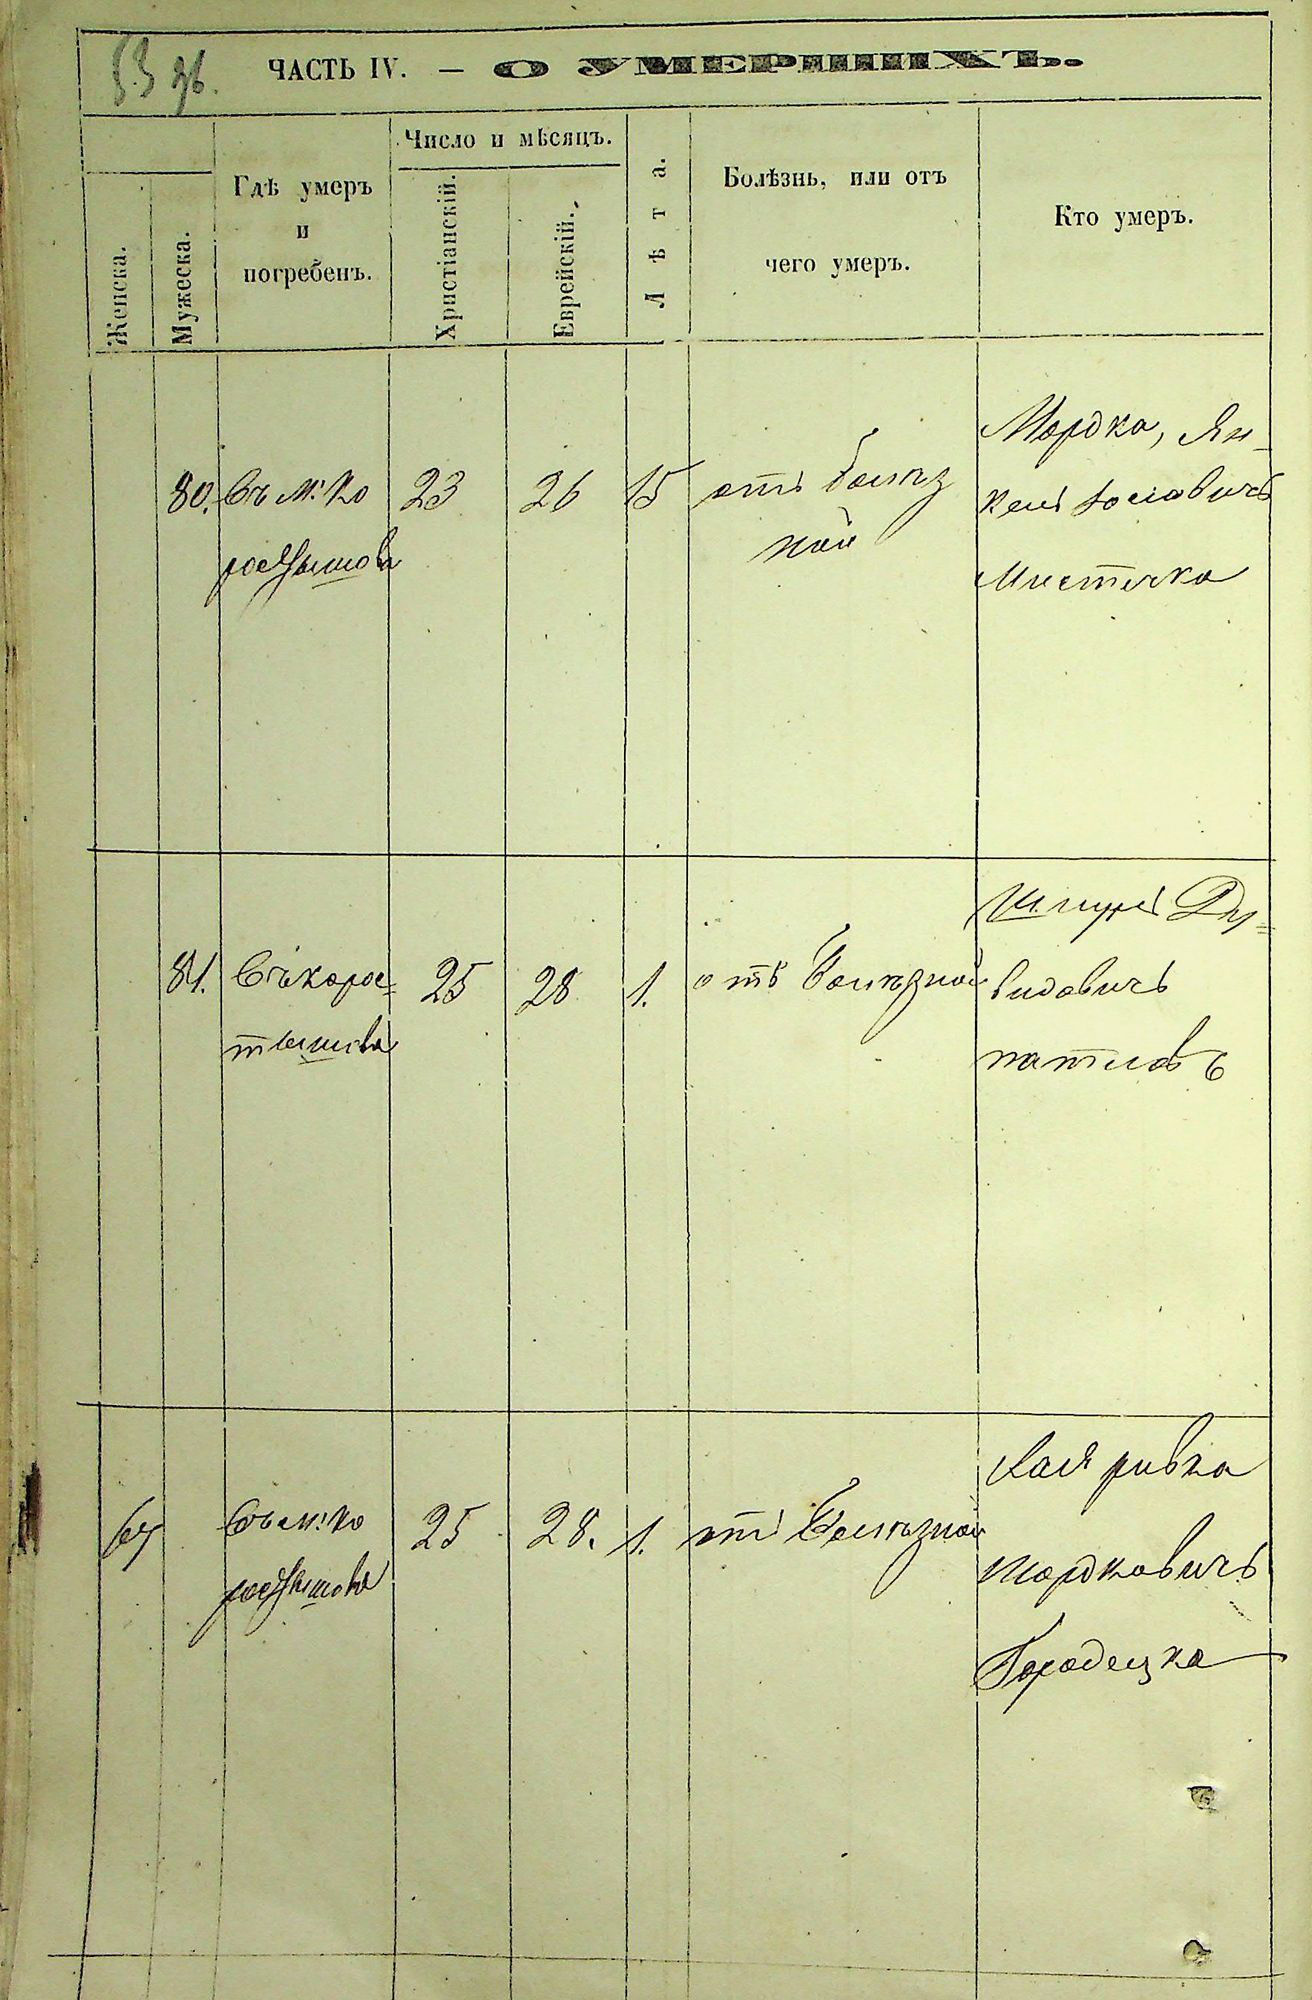 53 об.
ЧАСТЬ IV. — О УМЕРШИХЪ.
Женска.
Мужеска.
Гдѣ умеръ
и
погребенъ.
Число и мѣсяцъ.
Христіанскій.
Еврейскій.
Лѣта.
Болѣзнь, или отъ
чего умеръ.
Кто умеръ.
80. Въ м: Ко
ростышовѣ
23
26
15
отъ болѣз
ной
Мордко, Ян-
кель Іосіовичъ
Мистечко
81. Въ Корос=
тышовѣ
25
28
1.
отъ болѣзной
Шмуль Ду=
видовичъ
Въ м: Ко
ростышовѣ
25
28.
1.
отъ болѣзной
Хая ривка
мордковичъ
Городецка